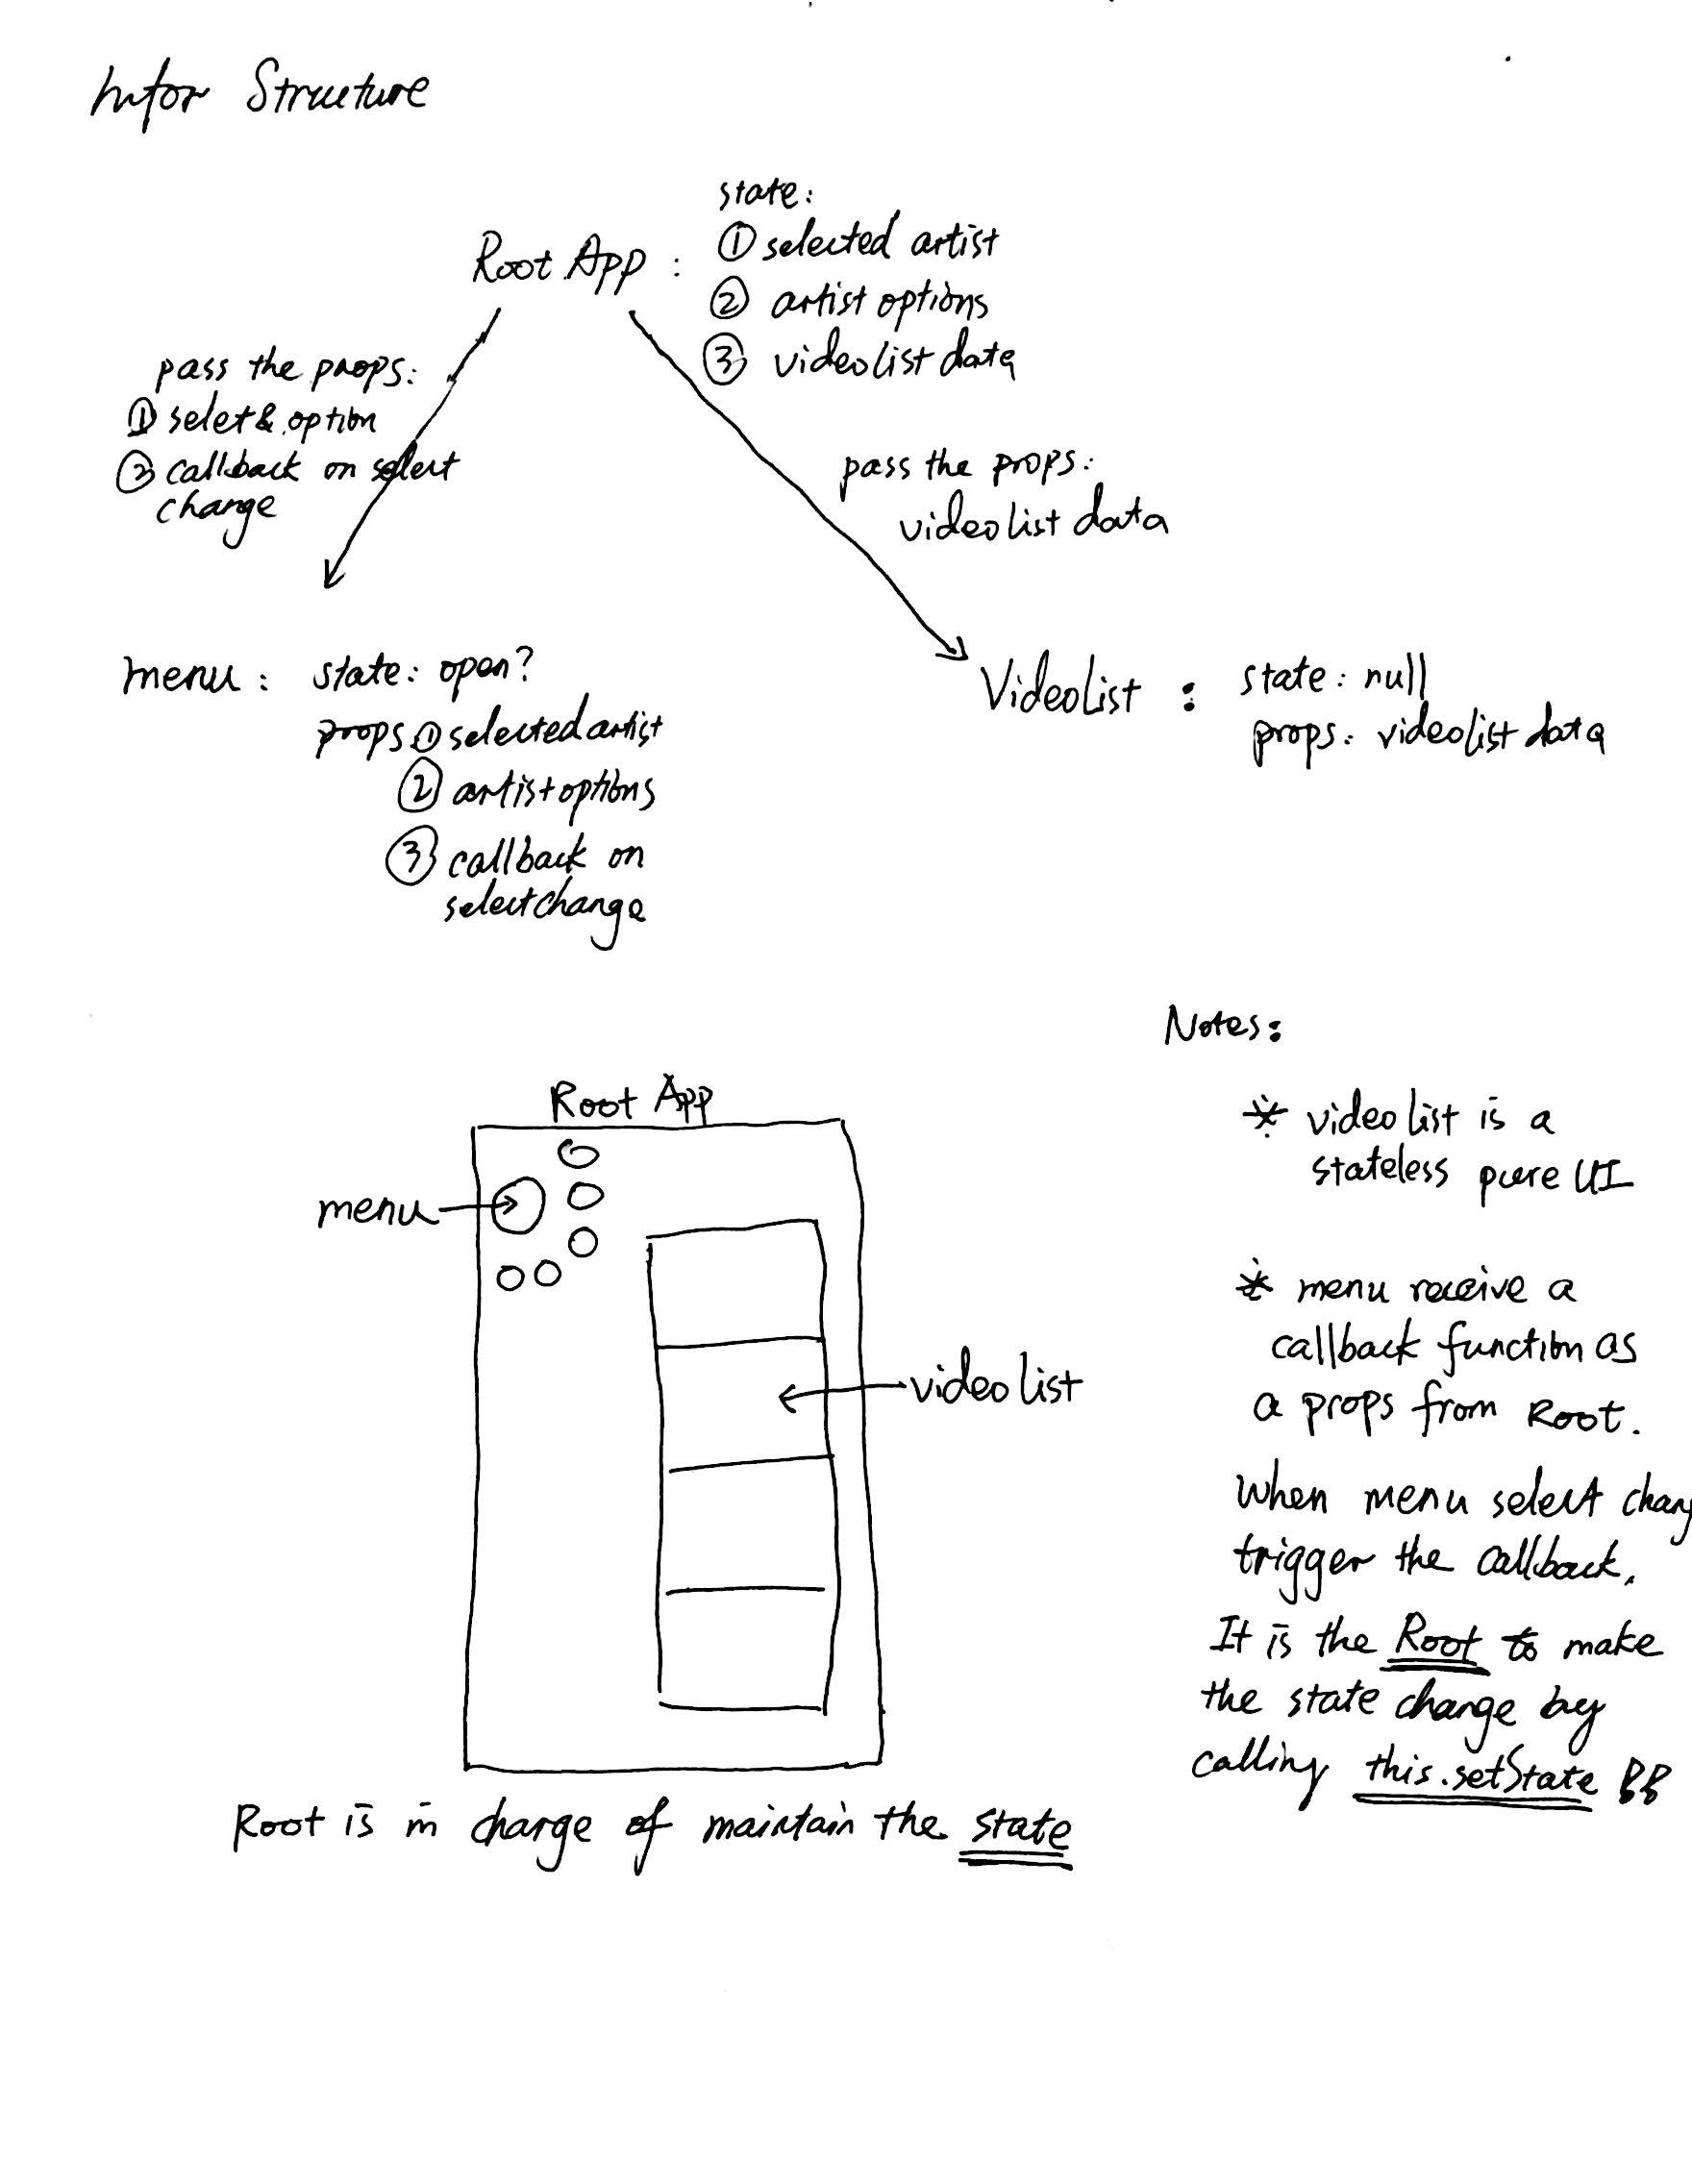 Infor Structure
state:
Root App :
① selected artist
② artist options
③ videolist data
pass the props:
① selet & option
② callback on select
change
pass the props:
videolist data
menu : state: open?
props ① selected artist
② artist options
③ callback on
select change
Videolist : state: null
props: videolist data
Root App
menu
videolist
Root is in charge of maintain the state
Notes:
* video list is a
stateless pure UI
* menu receive a
callback function as
a props from Root.
When menu select chang
trigger the callback.
It is the Root to make
the state change by
calling this.setState